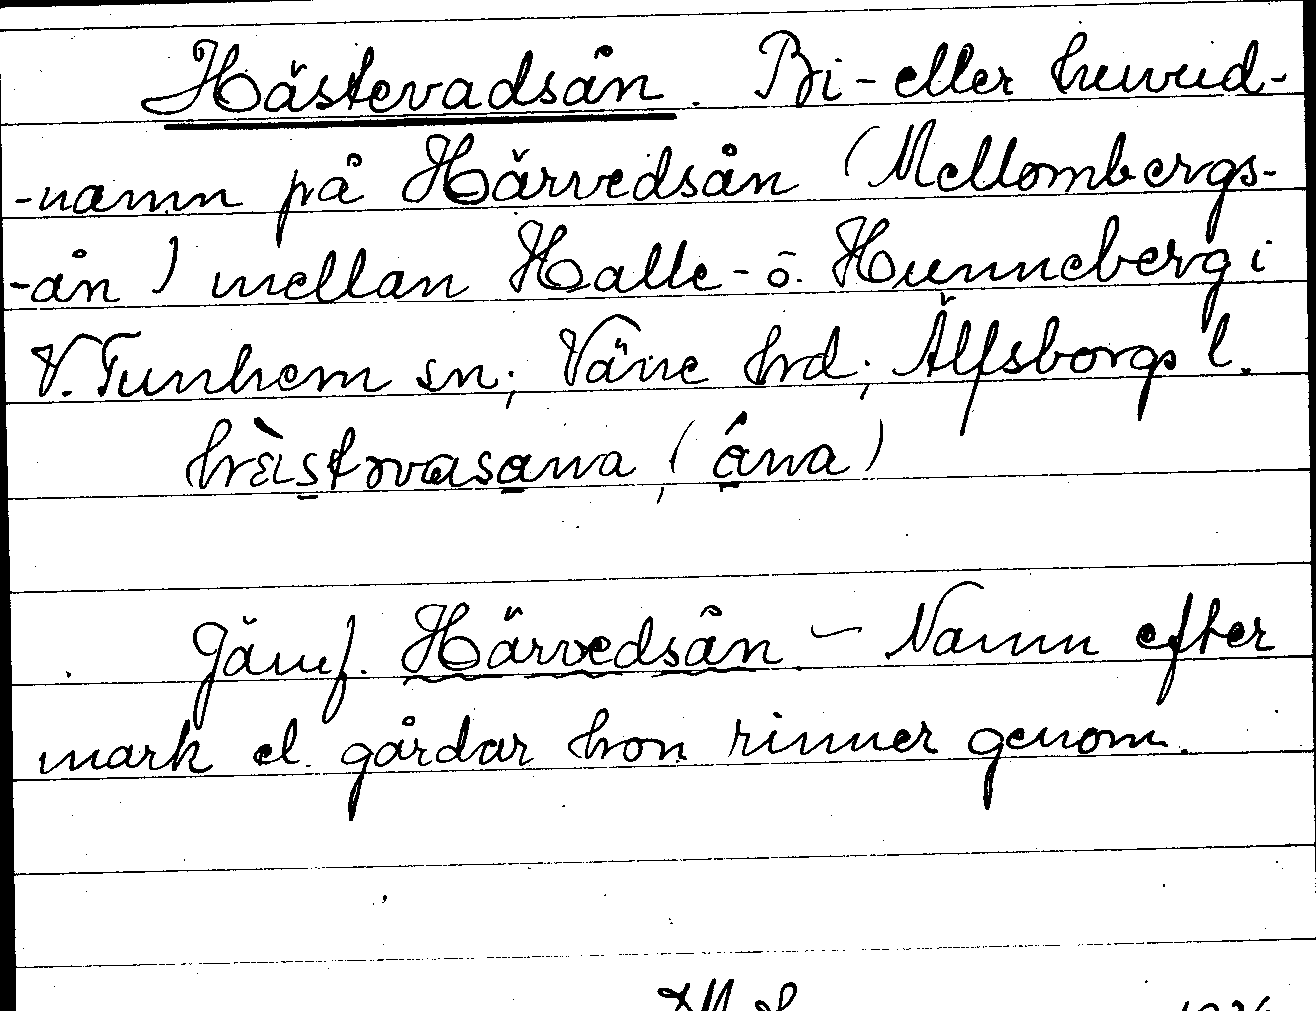 Hästevadsån. Bi-eller huvud-
-namn på Härvedsån (Mellombergs-
-ån) mellan Halle- o. Hunneberg i
V. Tunhem sn; Väne hrd; Älfsborgs l.
(åna)
Jämf. Härvedsån. — Namn efter
mark el. gårdar hon rinner genom.